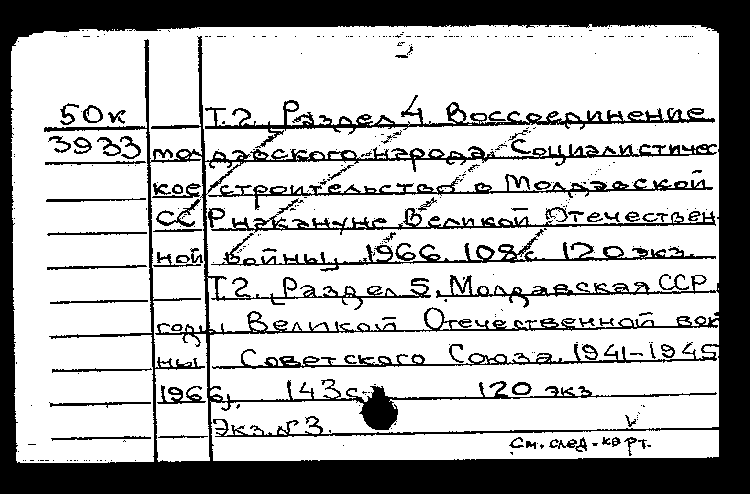 50к Т.2. Раздел 4. Воссоединение
3933 молдавского народа. Социалистичес
кое строительство в Молдавской
ССР накануне Великой Отечествен-
ной войны, 1966. 108с. 120 экз.
Т.2. Раздел 5. Молдавская ССР в
годы Великой Отечественной вой
ны Советского Союза. 1941-1945
1966, 143с. 120 экз
Экз. №3.
См. след. карт.